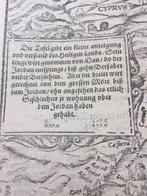 CYPRVS
Die Tafel gibt ein kleine anzeigung
und verstand des Heiligen Lands. Sein
lenge wirt genommen von Dan/ do der
Jordan entspringt/ biß gehn Bersabee
under Bethlehem. Aber die breite wirt
gerechnet von dem grossen Möre biß
zum Jordan/ ohn angesehen das etlich
Geschlechter je wohnung uber
dem Jordan haben
gehabt.